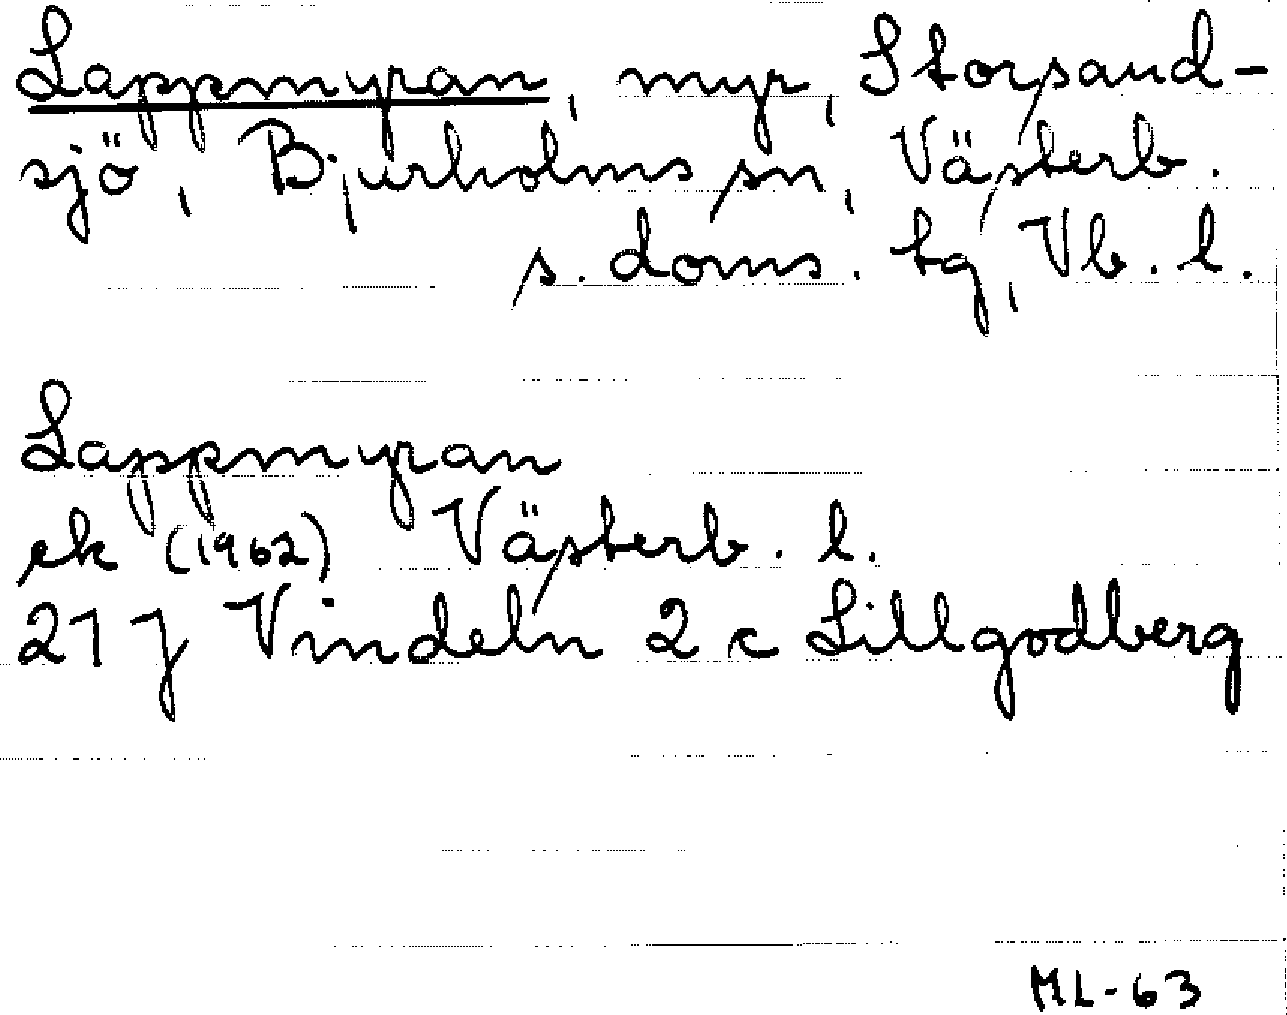 Lappmyran, myr, Storsand-
sjö, Bjurholms sn, Västerb.
s. doms. tg, Vb. l.
Lappmyran
ek (1962) Västerb. l.
21 J Vindeln 2 c Lillgodberg
ML-63